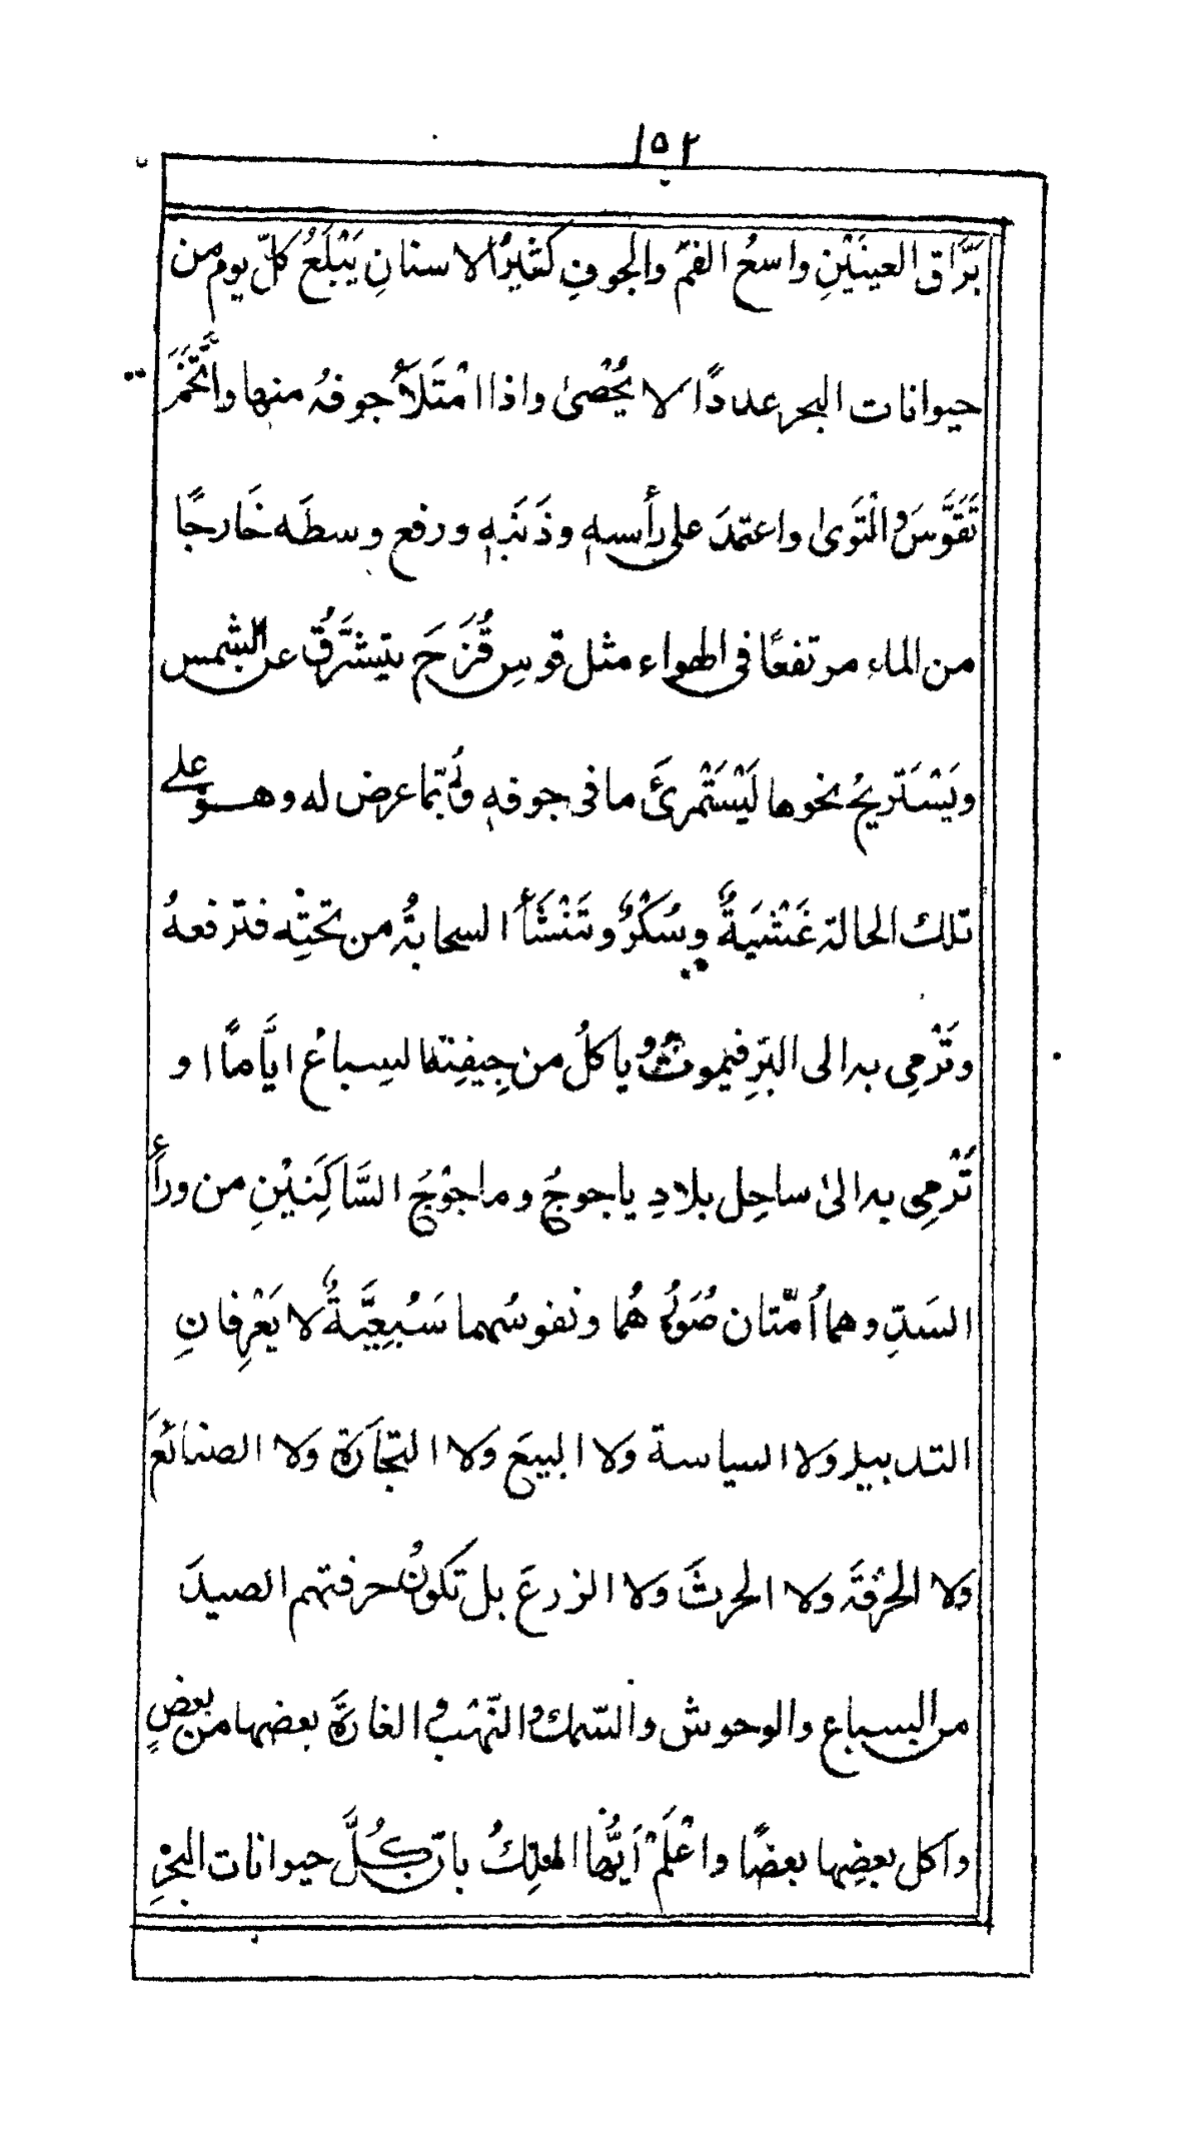 ١٥٢
بَرَّاق العينَيْنِ واسعُ الفمّ والجوفِ كثيرُ الاسنانِ يَبْلَعُ كلّ يوم من
حيوانات البحر عددًا لا يُحْصىٰ واذا امْتَلَأَ جوفهُ منها واتَّخَمَ
تَقَوَّسَ والْتَوىٰ واعتمدَ على رأسِه وذَنَبِه ورفع وسطَه خَارجًا
من الماء مرتفعًا فى الهواء مثل قوسِ قُزَحَ يتشَرَّقُ عين الشمس
ويَسْتَريحُ نحوها لَيَسْتَمْرِئَ ما فى جوفهٖ فرُبّما عرض له وهو على
تلك الحالة غَشْيَةٌ وسُكْرٌ وتَنْشَأُ السحابةُ من تحتِه فترفعهُ
وتَرْمِى به الى البَرِّ فيموتُ ويأكلُ من جِيفِته السِباعُ ايَّامًا او
تَرْمِى به الىٰ ساحِل بلادِ ياجوجُ وماجوْجُ السَّاكِنَيْنِ من ورأ
السَدِّ وهما اُمّتان صُوَرُهُما ونفوسُهما سَبُعِيَّةٌ لا يَعْرِفانِ
التدبير ولا السياسة ولا البيعَ ولا التجارَةَ ولا الصنائعَ
ولا الحرْفَةَ ولا الحرثَ ولا الزرعَ بل تكونُ حرفتهم الصيدَ
من السباع والوحوش والسّمك والنّهْب والغارةَ بعضها من بعضٍ
واكل بعضِها بعضًا واعْلَمْ اَيُّها الملِكُ بانّ كُلَّ حيوانات البحْرِ